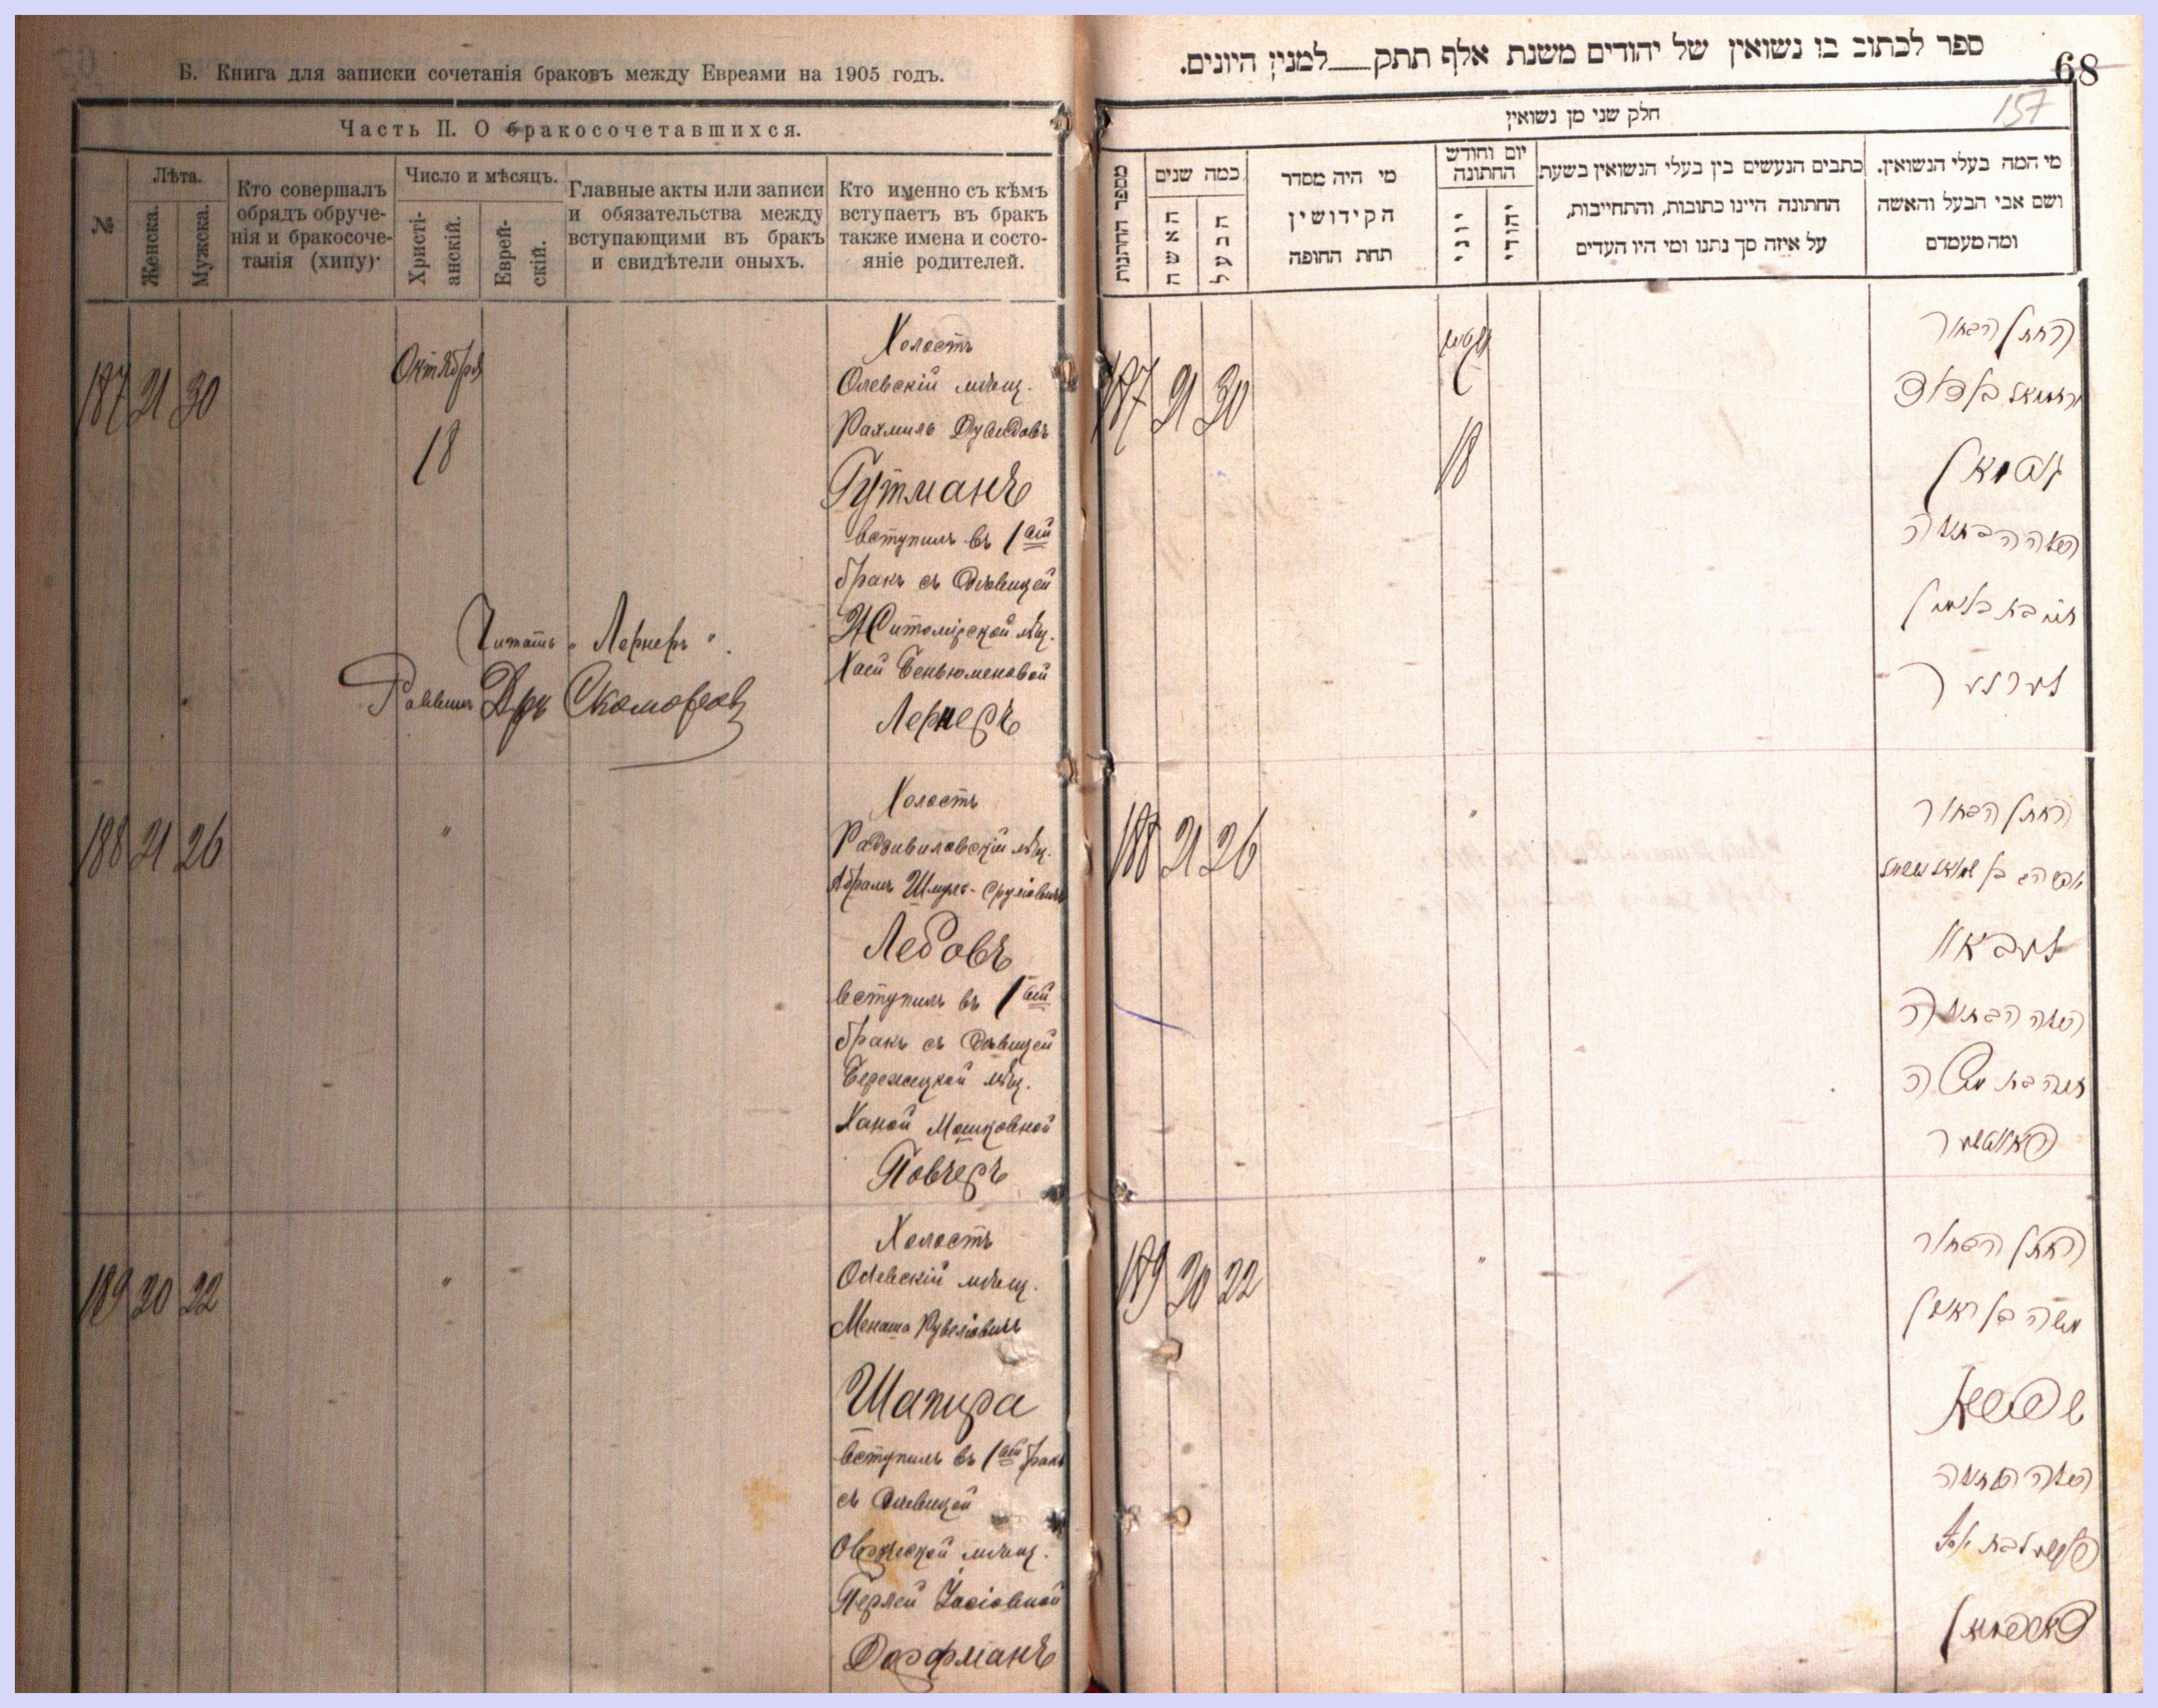 Б. Книга для записки сочетанія браковъ между Евреями на 1905 годъ.
Часть II. О бракосочетавшихся.
№
Лѣта.
Женска.
Мужска.
Кто совершалъ
обрядъ обруче-
нія и бракосоче-
танія (хипу).
Число и мѣсяцъ.
Христі-
анскій.
Еврей-
скій.
Главные акты или записи
и обязательства между
вступающими въ бракъ
и свидѣтели оныхъ.
Кто именно съ кѣмъ
вступаетъ въ бракъ
также имена и состо-
яніе родителей.
187 21 30
Октября
18
Холостъ
Олевскій мѣщ.
Рахмиль Дувидовъ
Гутманъ
вступилъ въ 1ый
бракъ съ дѣвицей
Житомірской мѣщ.
Хаей Беньюменовой
Лернеръ
Читать „Лернеръ".
Раввинъ Дръ Скоморовс
188 21 26
"
Холостъ
Радзивиловскій мѣщ.
Абрамъ Шмуль-Сруліовичъ
Ледовъ
вступилъ въ 1ый
бракъ съ дѣвицей
Бережецкой мѣщ.
Ханой Мошковной
Повчеръ
189 20 22
"
Холостъ
Олевскій мѣщ.
Менаша Рувеліовичъ
Шапира
вступилъ въ 1ый бракъ
съ дѣвицей
Овручской мѣщ.
Перлей Іосіовной
Дорфманъ
ספר לכתוב בו נשואין של יהודים משנת אלף תתק למנין היונים.
68
157
חלק שני מן נשואין
מספר החתנות
כמה שנים
האשה
הבעל
מי היה מסדר
הקידושין
תחת החופה
יום וחודש
החתונה
יוני
יהודי
כתבים הנעשים בין בעלי הנשואין בשעת
החתונה היינו כתובות, והתחייבות,
על איזה סך נתנו ומי היו העדים
מי המה בעלי הנשואין.
ושם אבי הבעל והאשה
ומה מעמדם
187 21 30
18
החתן הבחור
גוטמאן
הכלה הבתולה
חי' בת בנימין
לערנער
188 21 26
"
החתן הבחור
הכלה הבתולה
חנה בת משה
189 20 22
"
החתן הבחור
הכלה הבתולה